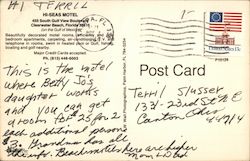 HI TERRIL
HI-SEAS MOTEL
455 South Gulf View Boulevard
Clearwater Beach, Florida 33515
(on the Gulf of Mexico)
Beautifully decorated rooms, efficiencies and
bedroom apartments, carpeting, air conditioning,
telephone in rooms, swim in heated pool or Gulf, fishing,
boating and golf nearby.
Major Credit Cards accepted.
Ph. (813) 446-6003
This is the motel
where Betty Jo's
daughter works
and you can get
a room for 25 for 2
each additional person
$3. Grandma has all
Beachmotels here are higher
Mom & Dad
Post Card
Terril Slusser
1331- 23rd St N E
Canton Ohio
44714